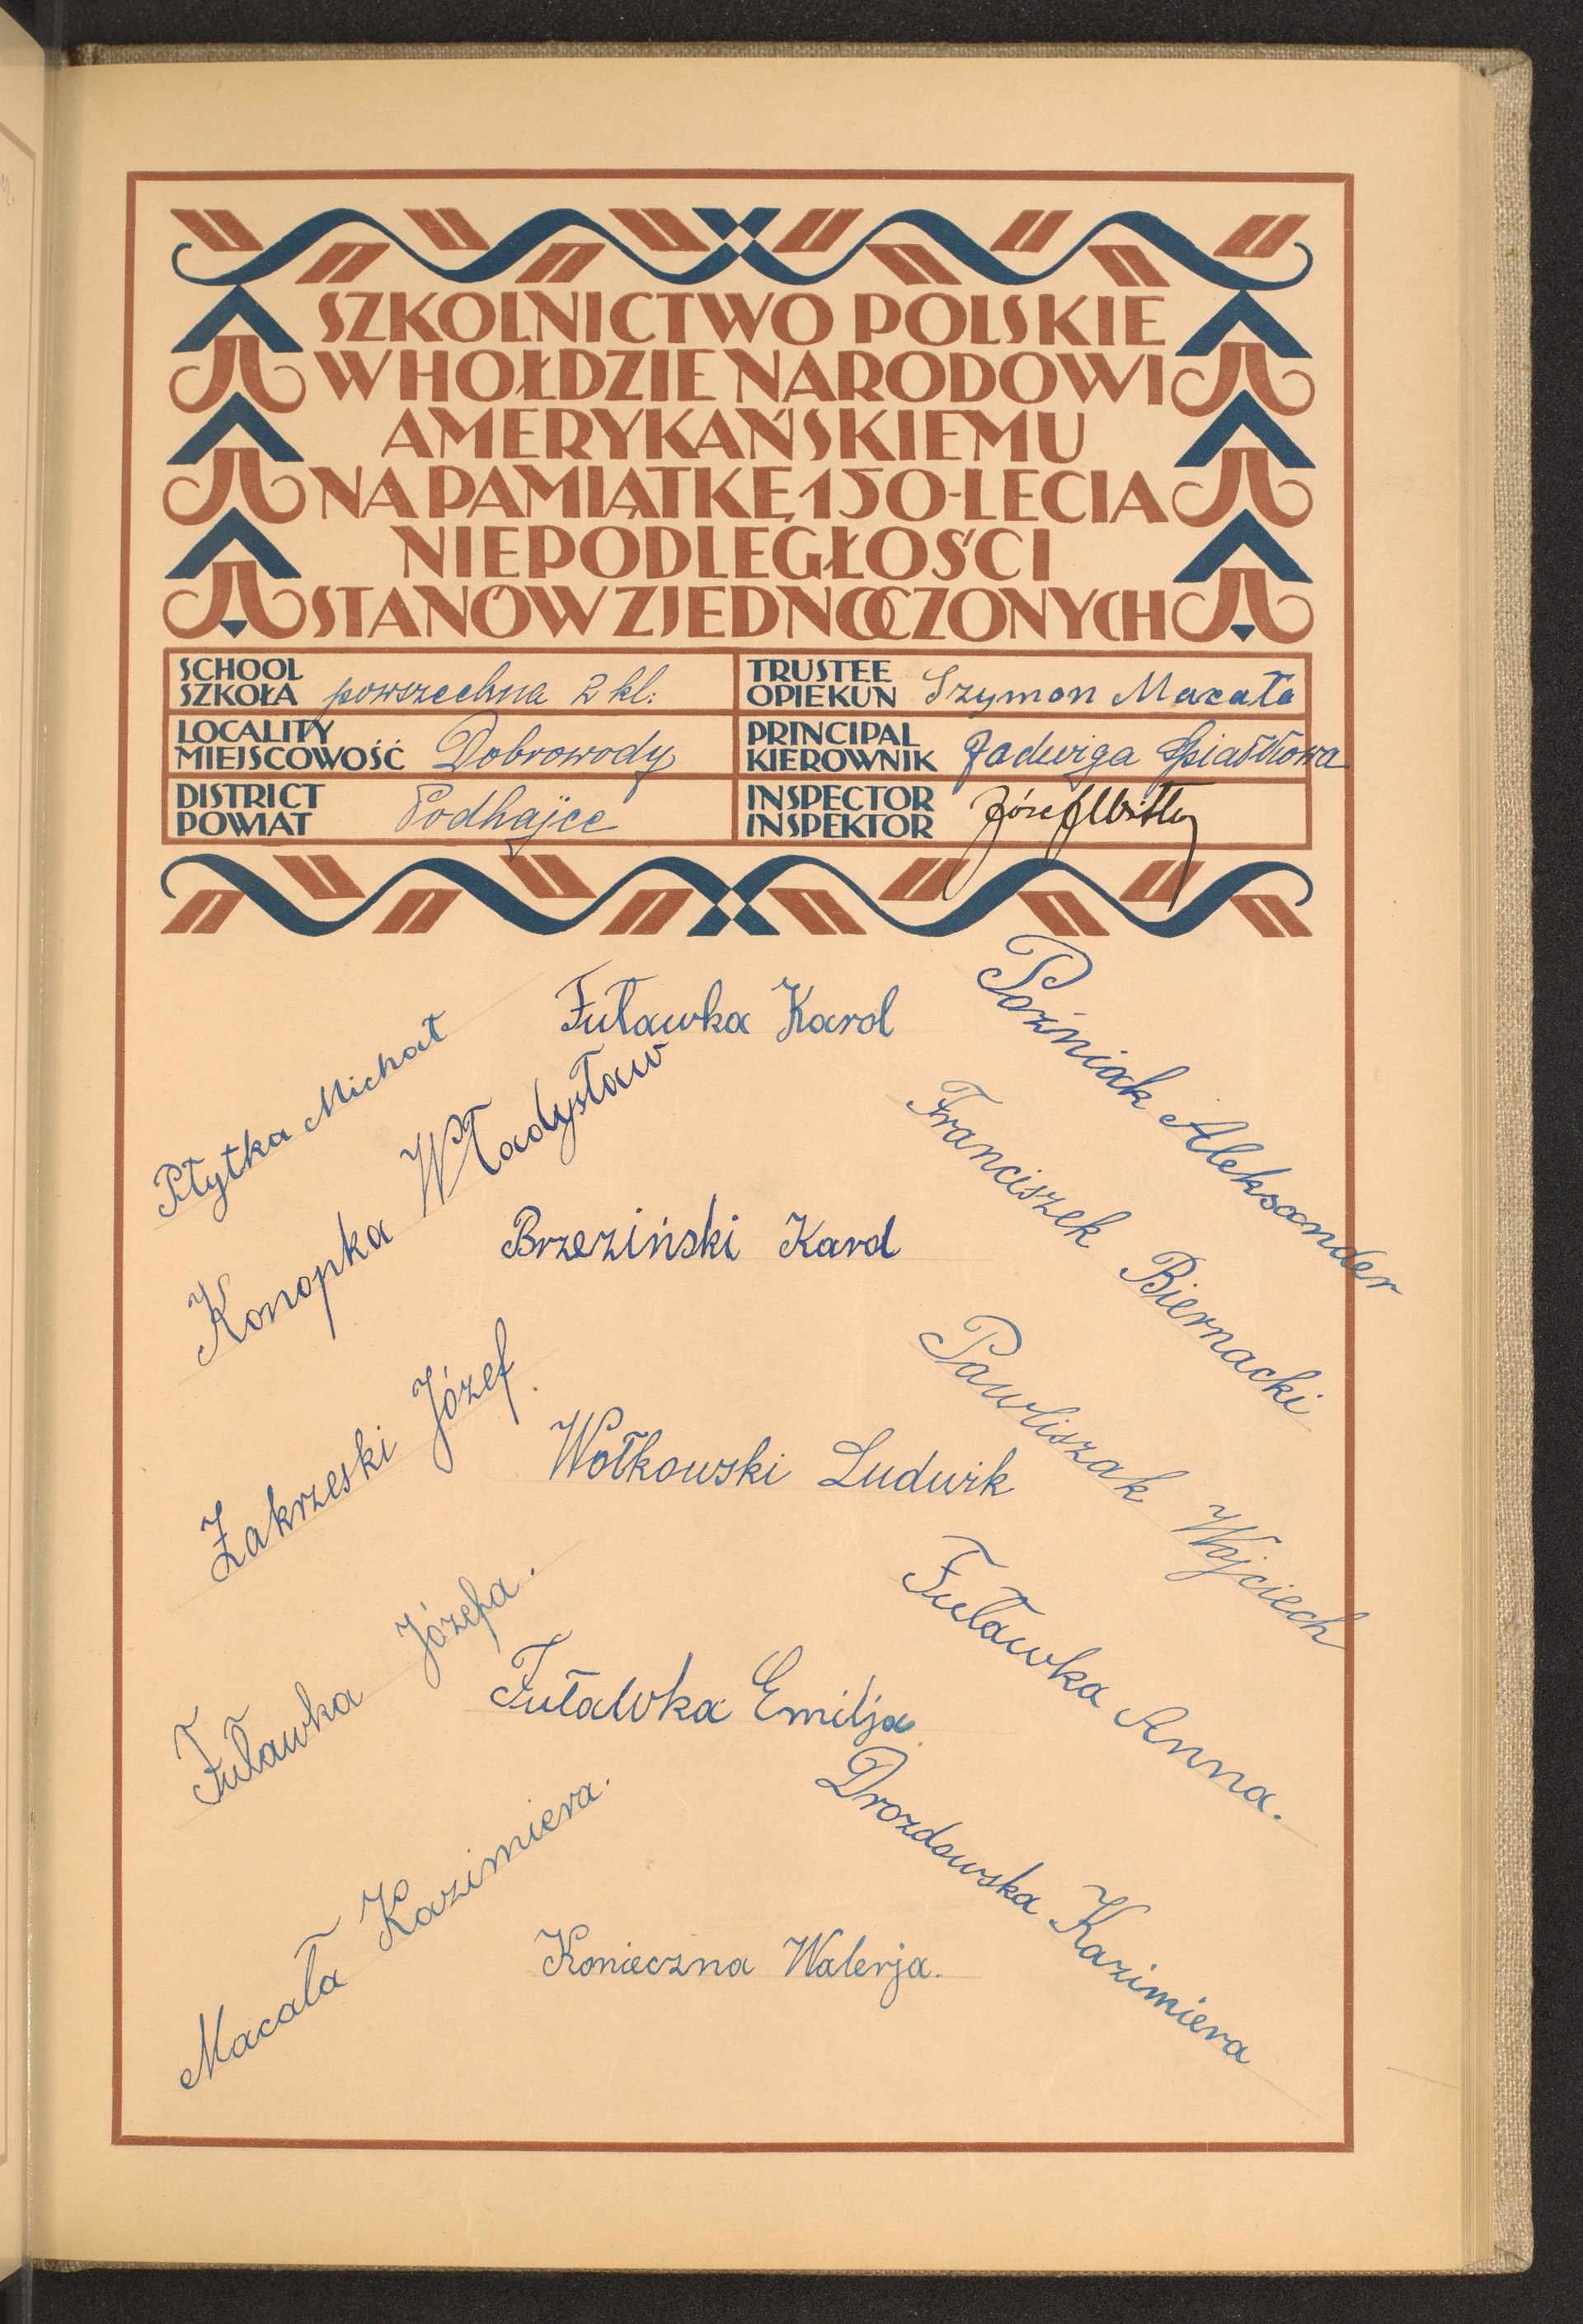 SZKOLNICTWO POLSKIE
W HOŁDZIE NARODOWI
AMERYKAŃSKIEMU
NA PAMIĄTKĘ 150-LECIA
NIEPODLEGŁOŚCI
STANÓW ZJEDNOCZONYCH
SCHOOL
SZKOŁA powszechna 2 kl:
TRUSTEE
OPIEKUN Szymon Macała
LOCALITY
MIEJSCOWOŚĆ Dobrowody
PRINCIPAL
KIEROWNIK Jadwiga
DISTRICT
POWIAT Podhajce
INSPECTOR
INSPEKTOR Józef
Płytka Michał
Fuławka Karol
Poźniak Aleksander
Konopka Władysław
Franciszek Biernacki
Brzeziński Karol
Zakrzeski Józef
Wołkowski Ludwik
Pawliszak Wojciech
Fuławka Józefa.
Fuławka Emilja
Fuławka Anna.
Macała Kazimiera.
Drozdowska Kazimiera
Konieczna Walerja.